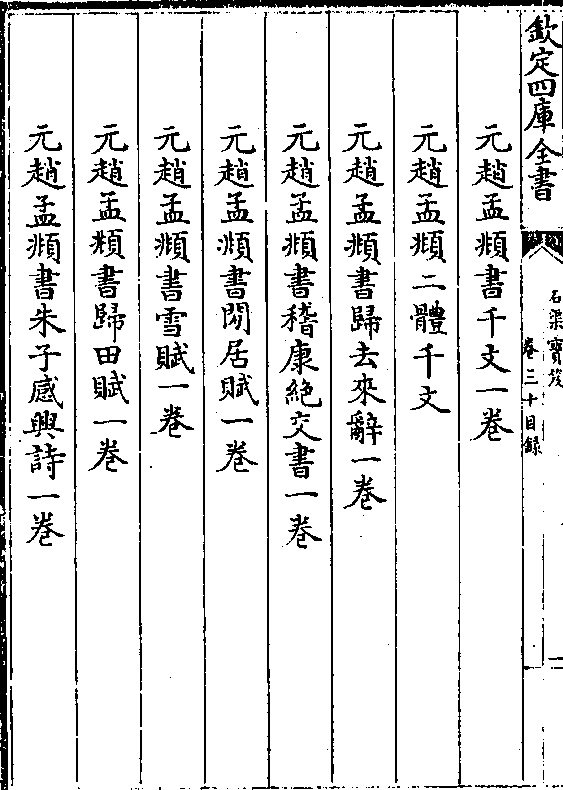 欽定四庫全書
石渠寶笈
卷三十目録
元趙孟頫書千文一卷
元趙孟頫二體千文
元趙孟頫書歸去來辭一卷
元趙孟頫書稽康絶交書一卷
元趙孟頫書閒居賦一卷
元趙孟頫書雪賦一卷
元趙孟頫書歸田賦一卷
元趙孟頫書朱子感興詩一卷